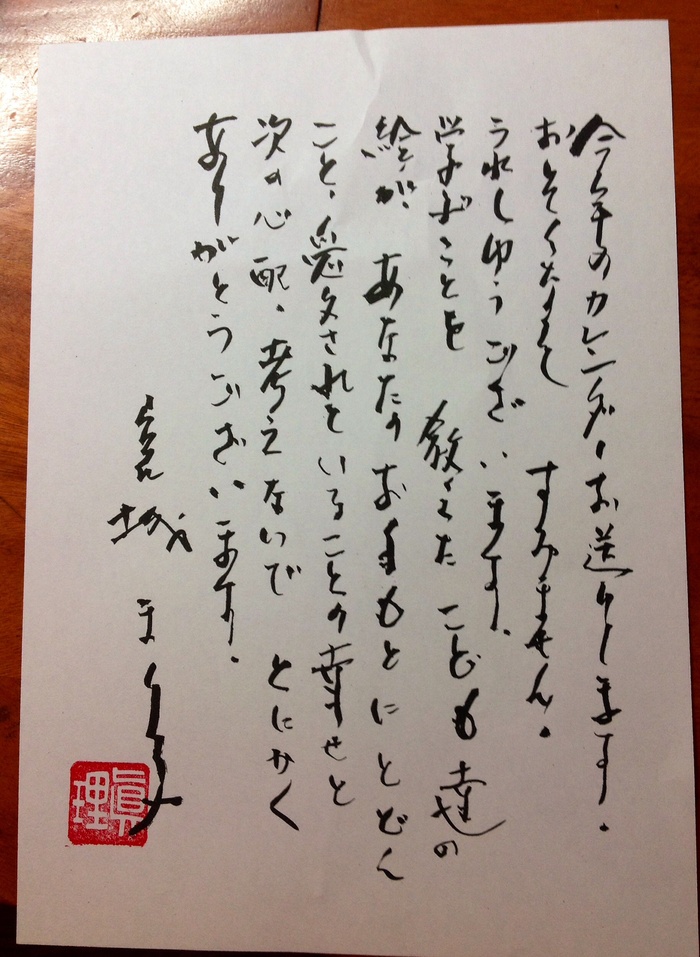 今年のカレンダーお送りします。
おそくなって すみません。
うれしゆうございます。
学ぶことを 教えた こども達の
絵が あなたのお手もとにとど
こと、されていることの幸せと
次の心配、考えないで とにかく
ありがとうございます。
宮城 まり子
眞理